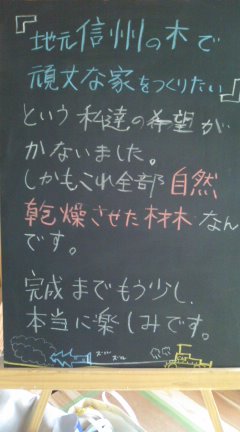 『地元信州の木で
頑丈な家をつくりたい』
という私達の希望が
かないました。
しかもこれ全部自然
乾燥させた木材なん
です。
完成までもう少し、
本当に楽しみです。
ズル ズル